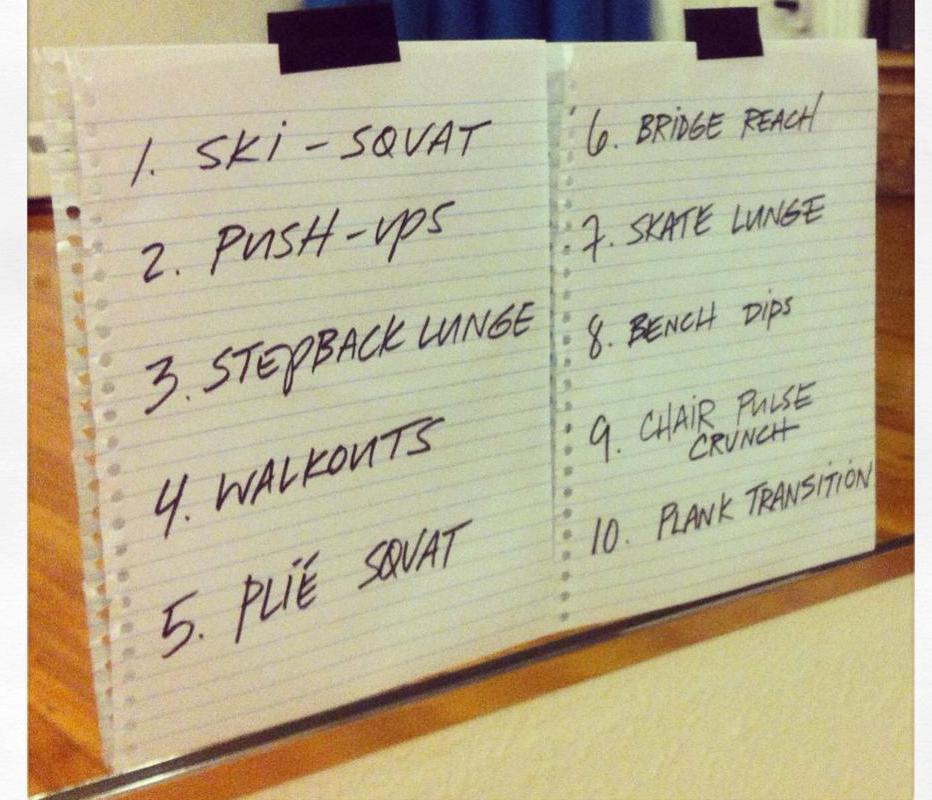 1. SKi - SQUAT
2. PUSH-UPS
3. STEPBACK LUNGE
4. WALKOUTS
5. PLiË SQUAT
6. BRiDGE REACH
7. SKATE LUNGE
8. BENCH Dips
9. CHAiR PULSE
CRUNCH
10. PLANK TRANSiTiON